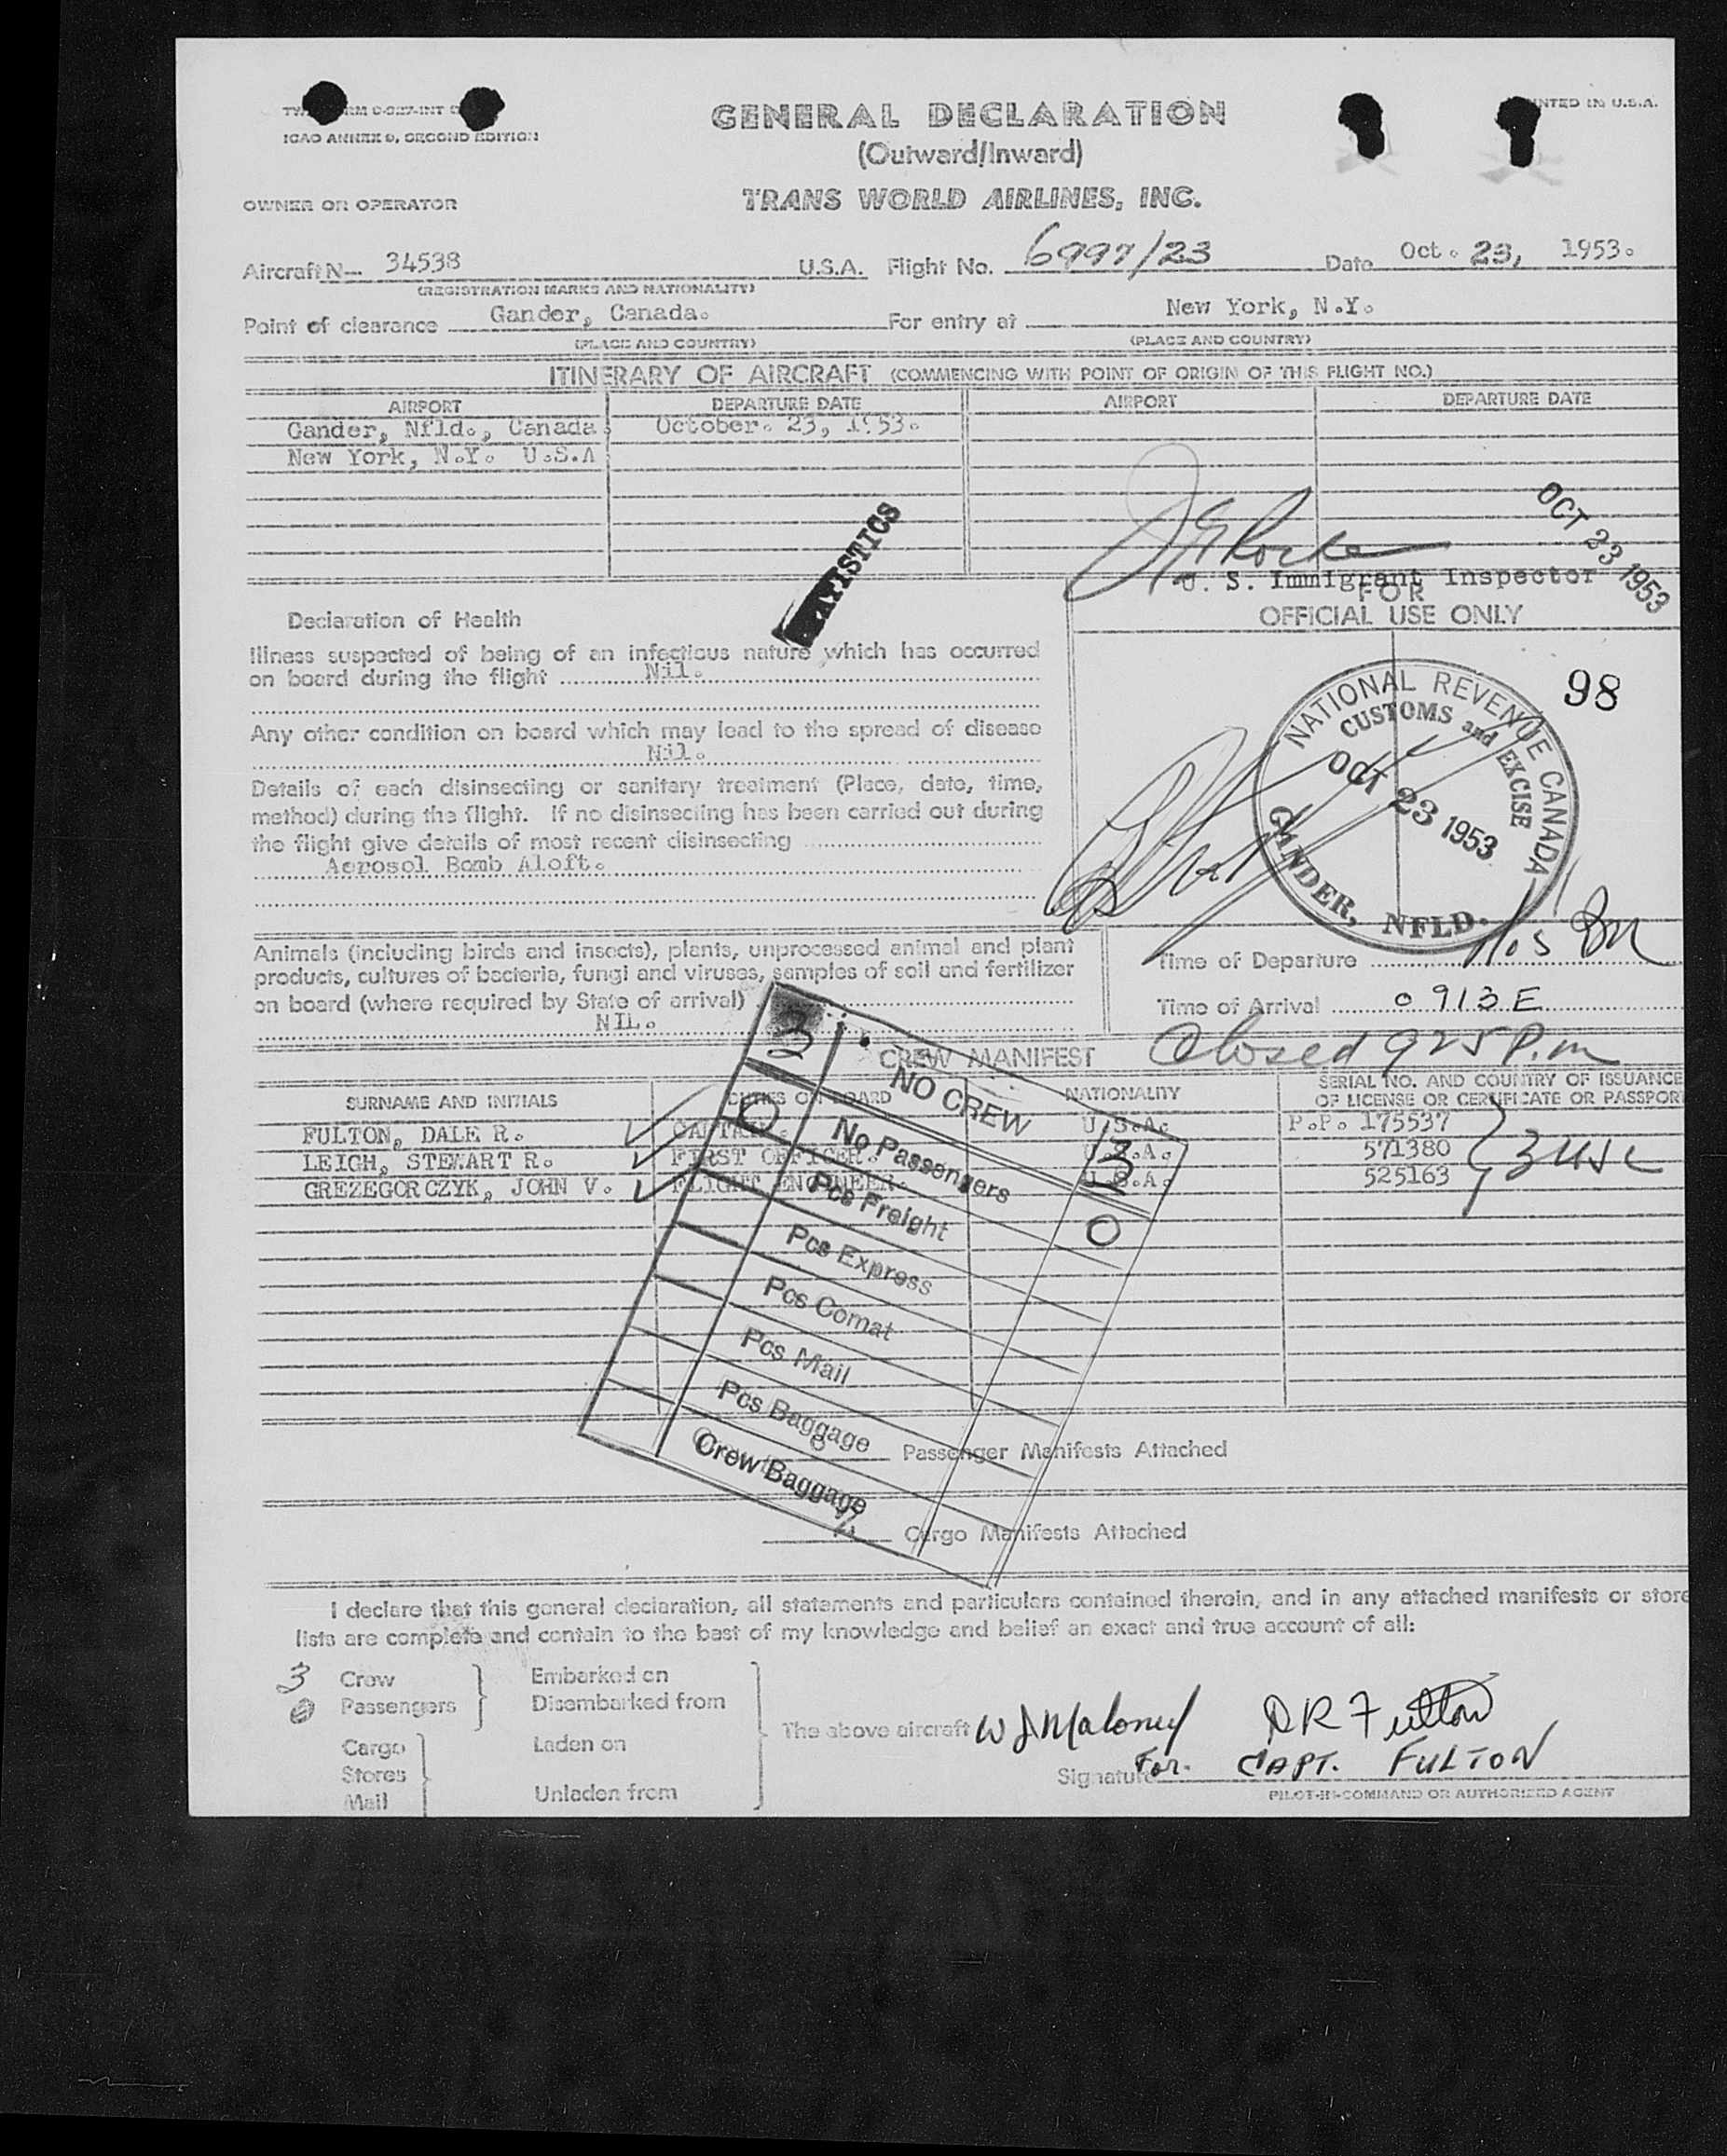 ICAO ANNEX 9, SECOND EDITION
GENERAL DECLARATION
(Outward/Inward)
TRANS WORLD AIRLINES, INC.
OWNER OR OPERATOR
Aircraft N— 34538 U.S.A. Flight No. 6997/23 Date Oct. 23, 1953.
(REGISTRATION MARKS AND NATIONALITY)
Point of clearance Gander, Canada. For entry at New York, N.Y.
(PLACE AND COUNTRY) (PLACE AND COUNTRY)
ITINERARY OF AIRCRAFT (COMMENCING WITH POINT OF ORIGIN OF THIS FLIGHT NO.)
AIRPORT DEPARTURE DATE AIRPORT DEPARTURE DATE
Gander, Nfld., Canada October. 23, 1953.
New York, N.Y. U.S.A
OCT 23 1953
U. S. Immigrant Inspector
FOR
OFFICIAL USE ONLY
Declaration of Health
Illness suspected of being of an infectious nature which has occurred
on board during the flight Nil.
Any other condition on board which may lead to the spread of disease
Nil.
Details of each disinsecting or sanitary treatment (Place, date, time,
method) during the flight. If no disinsecting has been carried out during
the flight give details of most recent disinsecting
Aerosol Bomb Aloft.
98
NATIONAL REVENUE CANADA
CUSTOMS and EXCISE
OCT 23 1953
GANDER, NFLD.
Animals (including birds and insects), plants, unprocessed animal and plant
products, cultures of bacteria, fungi and viruses, samples of soil and fertilizer
on board (where required by State of arrival)
NIL.
Time of Departure
Time of Arrival 0913E
Closed 925 P.m
CREW MANIFEST
SURNAME AND INITIALS DUTIES ON BOARD NATIONALITY SERIAL NO. AND COUNTRY OF ISSUANCE
OF LICENSE OR CERTIFICATE OR PASSPOR
FULTON, DALE R. CAPTAIN. U.S.A. P.P. 175537
LEIGH, STEWART R. FIRST OFFICER. U.S.A. 571380
GREZEGORCZYK, JOHN V. FLIGHT ENGINEER. U.S.A. 525163
3 USC
3 NO CREW 3
0 No Passengers 0
Pcs Freight
Pcs Express
Pcs Comat
Pcs Mail
Pcs Baggage
Crew Baggage
Passenger Manifests Attached
Cargo Manifests Attached
I declare that this general declaration, all statements and particulars contained therein, and in any attached manifests or store
lists are complete and contain to the best of my knowledge and belief an exact and true account of all:
3 Crew Embarked on
0 Passengers Disembarked from
Cargo Laden on
Stores
Mail Unladen from
The above aircraft W J Maloney DR Fulton
Signature For. CAPT. FULTON
PILOT-IN-COMMAND OR AUTHORIZED AGENT